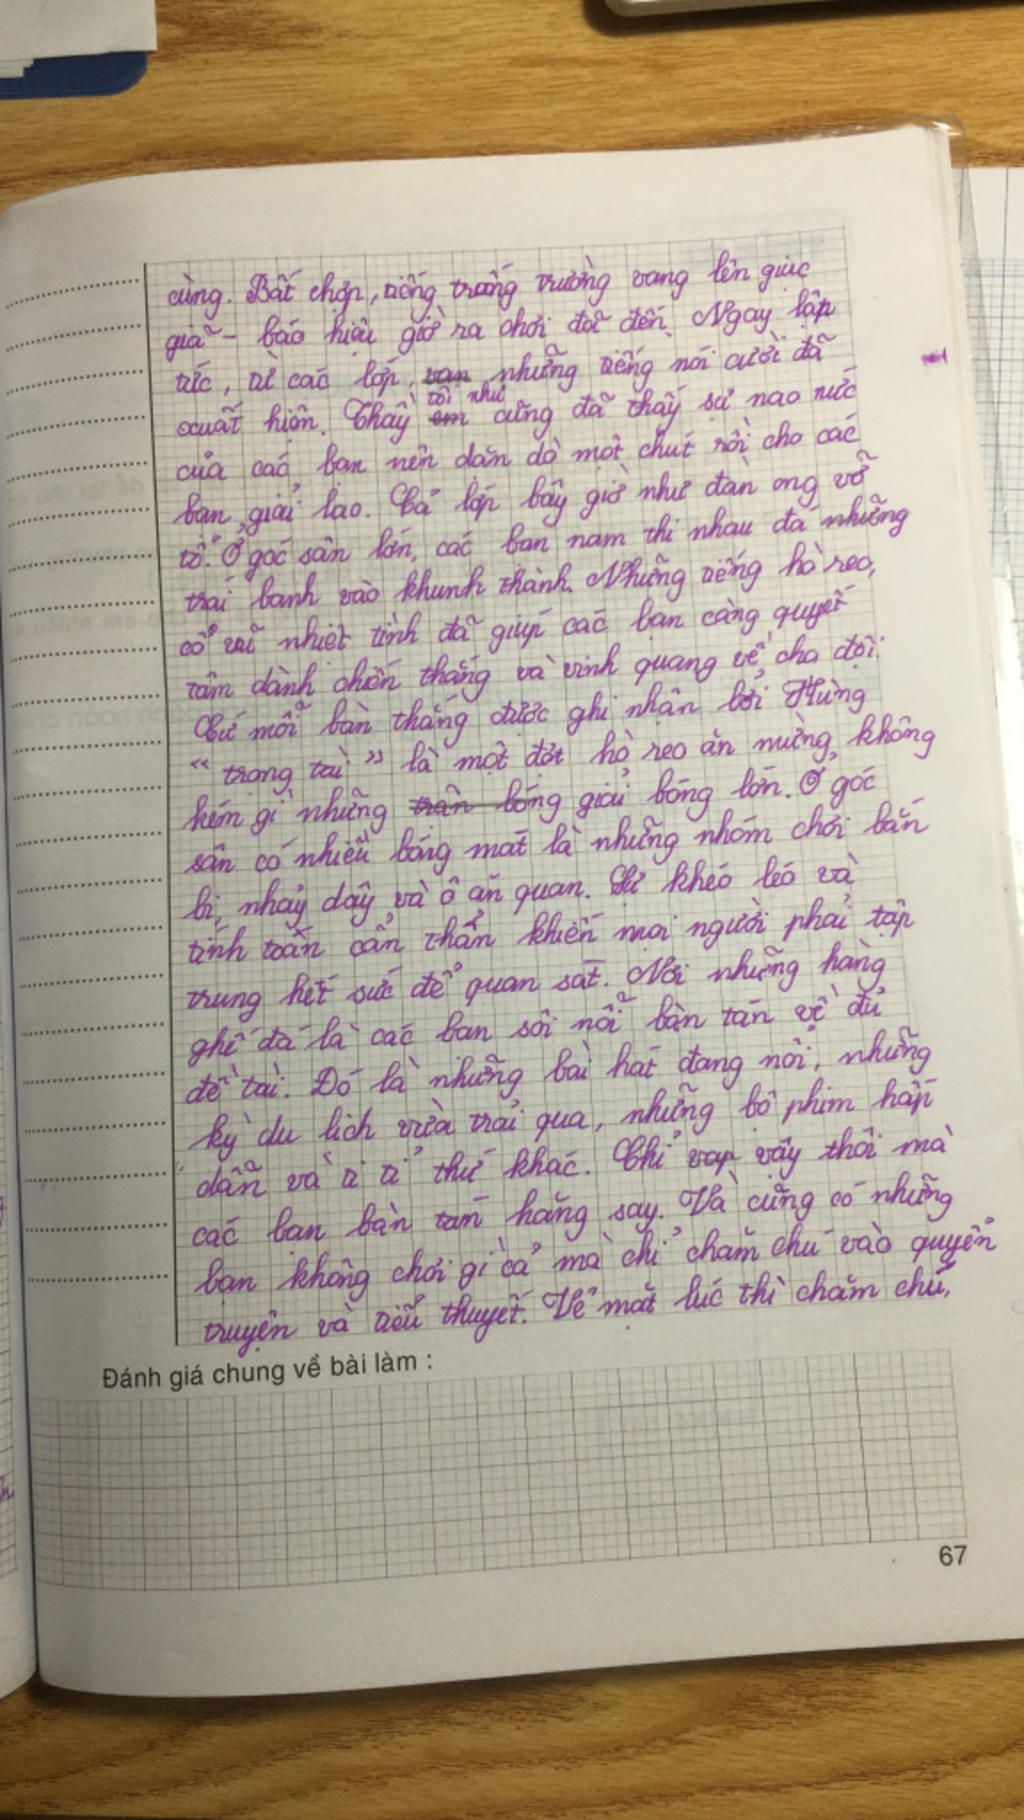 cùng. Bất chợp, tiếng trống trường vang lên giục
giã - báo hiệu giờ ra chơi đã đến. Ngay lập
tức, từ các lớp, những tiếng nói cười đã
xuất hiện. Thầy tôi như cũng đã thấy sự nao nức
của các bạn nên dặn dò một chút rồi cho các
bạn giải lao. Cả lớp bây giờ như đàn ong vỡ
tổ. Ở góc sân lớn, các bạn nam thi nhau đá những
trái banh vào khunh thành. Những tiếng hò reo,
cổ vũ nhiệt tình đã giúp các bạn càng quyết
tâm dành chiến thắng và vinh quang về cho đội.
Cứ mỗi bàn thắng được ghi nhận bởi Hưng
"trọng tài" là một đợt hò reo ăn mừng, không
kém gì những trận bóng giải bóng lớn. Ở góc
sân có nhiều bóng mát là những nhóm chơi bắn
bi, nhảy dây và ô ăn quan. Sự khéo léo và
tính toán cẩn thẩn khiến mọi người phải tập
trung hết sức để quan sát. Nơi những hàng
ghế đá là các bạn sôi nổi bàn tán về đủ
đề tài. Đó là những bài hát đang nổi, những
kỳ du lịch vừa trải qua, những bộ phim hấp
dẫn và tỉ tỉ thứ khác. Chỉ vậy thôi mà
các bạn bàn tán hăng say. Và cũng có những
bạn không chơi gì cả mà chỉ chăm chú vào quyển
truyện và tiểu thuyết. Vẻ mặt lúc thì chăm chú,
Đánh giá chung về bài làm :
67